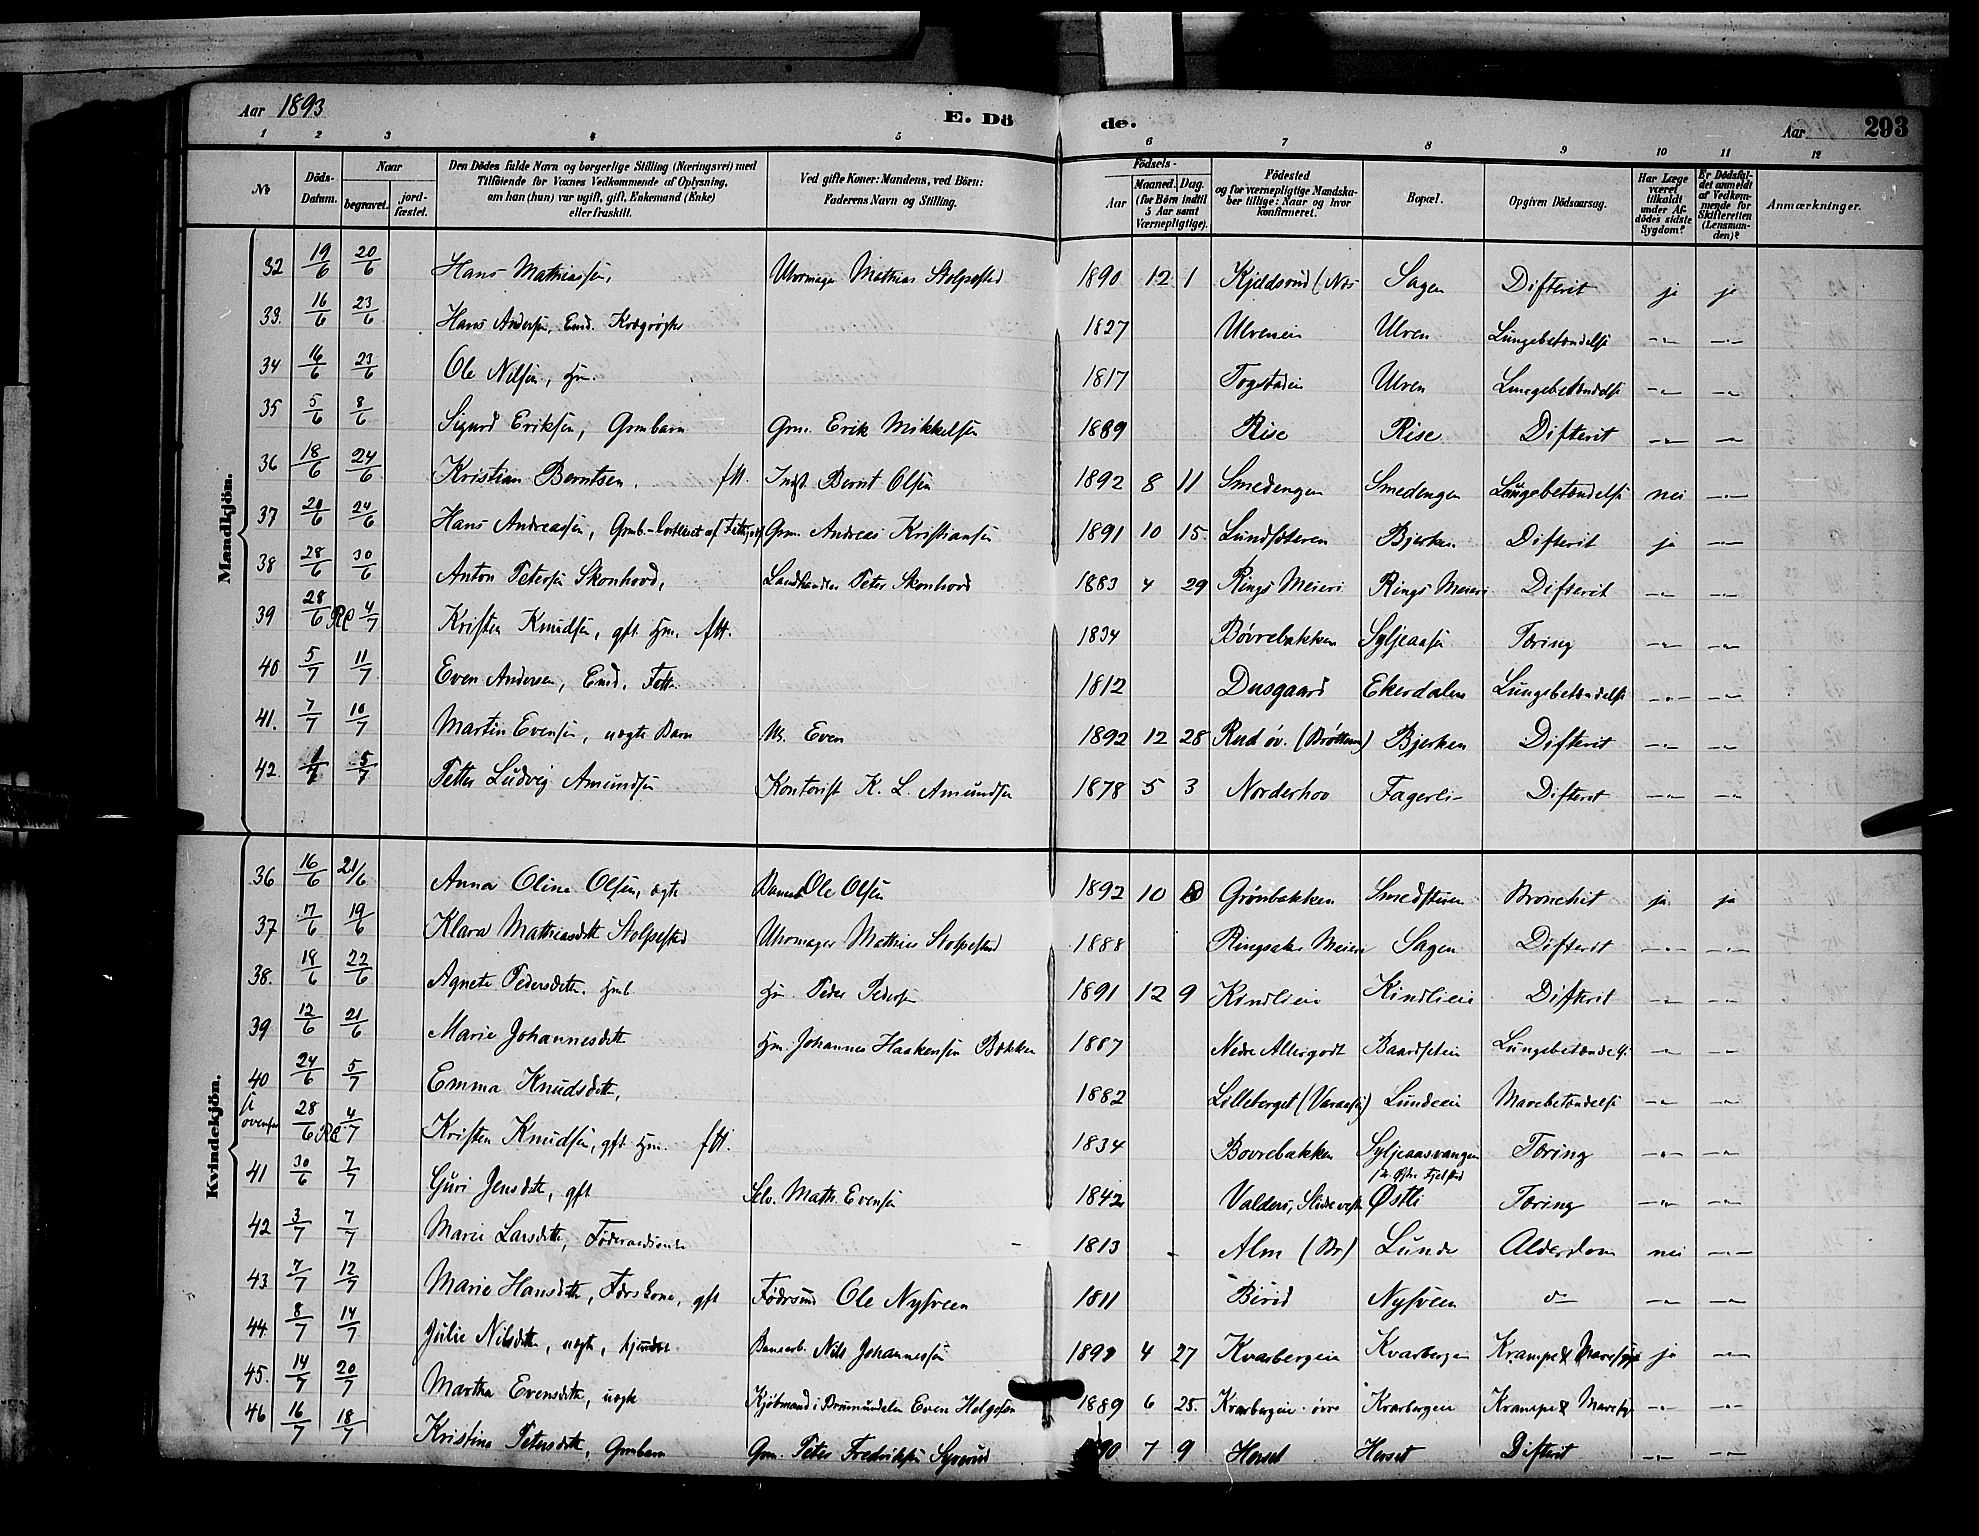 Aar 1893 E. Dö de. Aar 293
1 2 3 4 5 6 7 8 9 10 11 12
No
Döds-Datum.
Naar
begravet.
jord-fæstet.
Den Dödes fulde Navn og borgerlige Stilling (Næringsvei) med
Tilföiende for Voxnes Vedkommende af Oplysning,
om han (hun) var ugift, gift, Enkemand (Enke)
eller fraskilt.
Ved gifte Koner: Mandens, ved Börn:
Faderens Navn og Stilling.
Födsels-
Aar
Maaned. Dag.
(for Börn indtil
5 Aar samt
Værnepligtige).
Födested
og for værnepligtige Mandska-
ber tillige: Naar og hvor
konfirmeret.
Bopæl.
Opgiven Dödsaarsag.
Har Læge
været
tilkaldt
under Af-
dödes sidste
Sygdom?
Er Dödsfal-
det anmeldt
af Vedkom-
mende for
Skifteretten
(Lensman-
den)?
Anmærkninger.
Mandkjön.
32 19/6 20/6 Hans Mathiassen, Uhrmager Mathias Stolpestad 1890 12 1 Kjeldsrud (Næs Sagen Difterit ja ja
33. 16/6 23/6 Hans Andersen, Emd. Kreg 1827 Ulveneie Ulven Lungebetændelse -"- -"-
34 16/6 23/6 Ole Nilsen, Hm. 1817 Togstadeie Ulven Lungebetændelse -"- -"-
35 5/6 8/6 Sigurd Eriksen, Grmbarn Grm. Erik Mikkelsen 1889 Rise Rise Difterit -"- -"-
36 18/6 24/6 Kristian Berntsen, ftt. Indst. Bernt Olsen 1892 8 11 Smedengen Smedengen Lungebetændelse nei -"-
37 20/6 24/6 Hans Andreassen, Grmb. Grm. Andreas Kristiansen 1891 10 15. Lundsæteren Bjerken Difterit ja -"-
38 28/6 30/6 Anton Petersen Skonhovd, Landhandler Peter Skonhovd 1883 4 29 Rings Meieri Rings Meieri Difterit -"- -"-
39 28/6 4/7 Kristen Knudsen, gft. Hm. ftt. 1834 Bövrebakken Syljeaasen Tæring -"- -"-
40 5/7 11/7 Even Andersen, Emd. Fatt. 1812 Dusgaard Ekerdalen Lungebetændelse -"- -"-
41. 7/7 10/7 Martin Evensen, uægte Barn U. Even 1892 12 28 Rud öv. (Bröttum) Bjerken Difterit -"- -"-
42. 5/7 Petter Ludvig Amundsen Kontorist K. L. Amundsen 1878 5 3 Norderhov Fagerli Difterit -"- -"-
Kvindekjön.
36 16/6 21/6 Anna Oline Olsen, ægte Ole Olsen 1892 10 Grönbakken Smedstuen Bronchit ja ja
37 7/6 19/6 Klara Mathiasdtr Stolpestad Uhrmager Mathias Stolpestad 1888 Ringsaker Meieri Sagen Difterit -"- -"-
38. 19/6 22/6 Agnete Pedersdtr. Hmb. Hm. Peder Pedersen 1891 12 9 Kindlieie Kindlieie Difterit -"- -"-
39 12/6 21/6 Marie Johannesdtr Hm. Johannes Haakensen Bakken 1887 Nedre Allergodt Baardseteie Lungebetændelse -"- -"-
40 24/6 5/7 Emma Knudsdtr, 1882 Lilleberget (Vardal) Lundeeie Mavebetændelse -"- -"-
ovenfor 28/6 4/7 Kristen Knudsen, gft. Hm. ftt. 1834 Bövrebakken Syljeaasvangen Tæring -"- -"-
41 30/6 7/7 Guri Jensdtr, gft Selv. Math. Evensen 1842 Valders, Slidre Østli Tæring -"- -"-
42 3/7 7/7 Marie Larsdtr, Föderaadsenke 1813 Alm (Br) Lunde Alderdom nei -"-
43. 7/7 12/7 Marie Hansdtr, gft Ole Nysveen 1811 Birid Nysveen do -"- -"-
44. 8/7 14/7 Julie Nilsdtr, uægte Nils Johannessen 4 27 Kvarbergeie Kvarbergeie Krampe & ja -"-
45. 14/7 20/7 Martha Evensdtr, uægte Kjöbmand i Brumundalen Even Helgesen 1889 6 25. Kvarbergeie övre Kvarbergeie Krampe & -"- -"-
46 16/7 18/7 Kristine Petersdtr, Grmbarn Grm. Peter Fredriksen Syverud 1890 7 9 Horset Horset Difterit -"- -"-